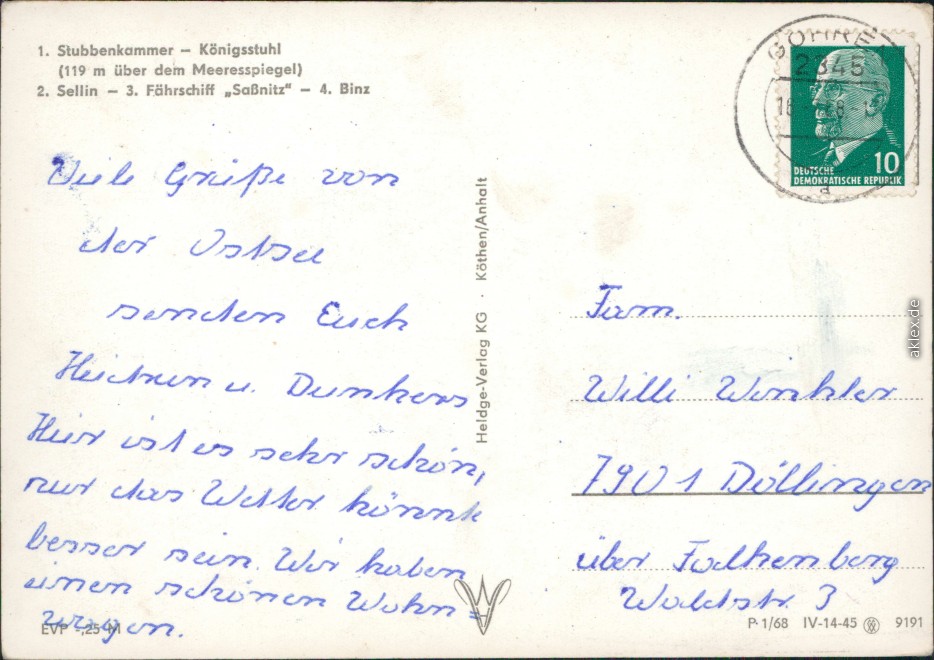 1. Stubbenkammer – Königsstuhl
(119 m über dem Meeresspiegel)
2. Sellin – 3. Fährschiff „Saßnitz“ – 4. Binz
Viele Grüße von
der Ostsee
senden Euch
u. Dunkers
Hier ist es sehr schön,
nur das Wetter könnte
besser sein. Wir haben
einen schönen Wohn=
wagen.
EVP -,25 M
Heldge-Verlag KG · Köthen/Anhalt
GÖHREN
2345
a
10
DEUTSCHE
DEMOKRATISCHE REPUBLIK
Fam.
Willi Winkler
7901 Döllingen
über Falkenberg
Waldstr. 3
P 1/68 IV-14-45 9191
aklex.de